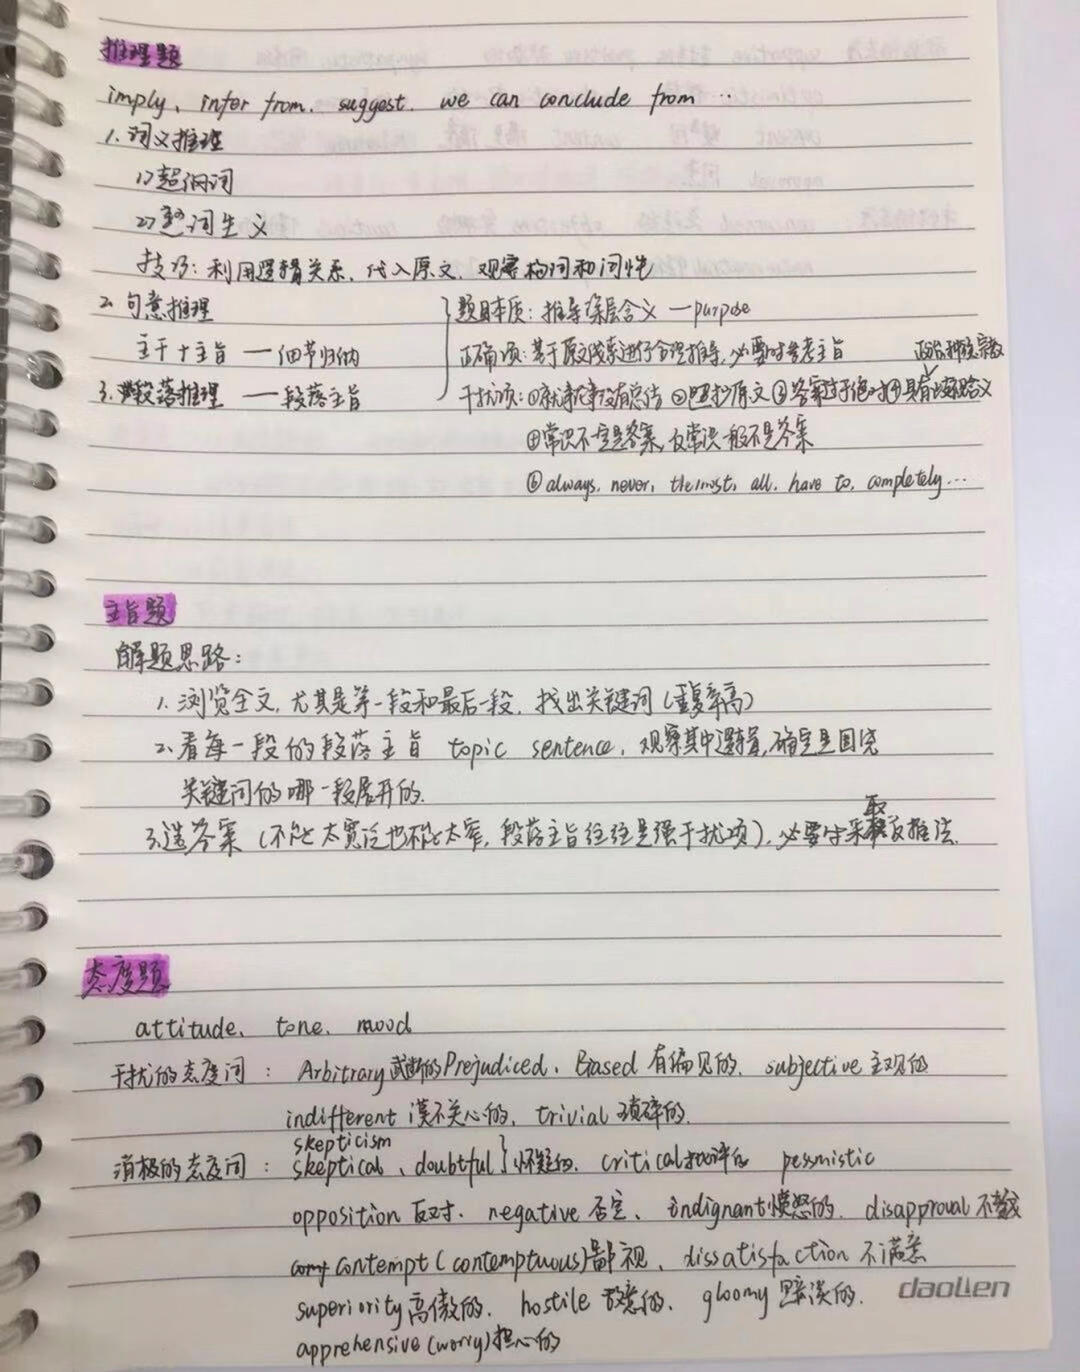 推理题
imply、infer from、suggest、we can conclude from …
1. 词义推理
1) 超纲词
2) 熟词生义
技巧：利用逻辑关系、代入原文、观察构词和词性
2. 句意推理
主干+主旨 — 细节归纳
3. 段落推理 — 段落主旨
题目本质：推导深层含义 — purpose
正确项：基于原文线索进行合理推导，必要时参考主旨
政治、种族、宗教
干扰项：①就事论事没有总结 ②照抄原文 ③答案过于绝对 ④具有 含义
⊕常识不一定是答案，反常识一般不是答案
⑥ always, never, the most, all, have to, completely …
主旨题
解题思路：
1. 浏览全文，尤其是第一段和最后一段，找出关键词（重复率高）
2. 看每一段的段落主旨 topic sentence，观察其中逻辑，确定是围绕
关键词的哪一段展开的.
3. 选答案（不能太宽泛也不能太窄，段落主旨往往是强干扰项），必要时采取反推法.
态度题
attitude、tone、mood
干扰的态度词： Arbitrary武断的 Prejudiced、Biased 有偏见的、subjective 主观的
indifferent 漠不关心的、trivial 琐碎的.
skepticism
消极的态度词： skeptical、doubtful } 怀疑的、critical批评的 pessmistic
opposition 反对、negative 否定、indignant愤怒的、disapproval 不赞成
contempt (contemptuous)鄙视、dissatisfaction 不满意
superiority 高傲的、hostile 敌意的、gloomy 黯淡的.
apprehensive (worry) 担心的
daolien